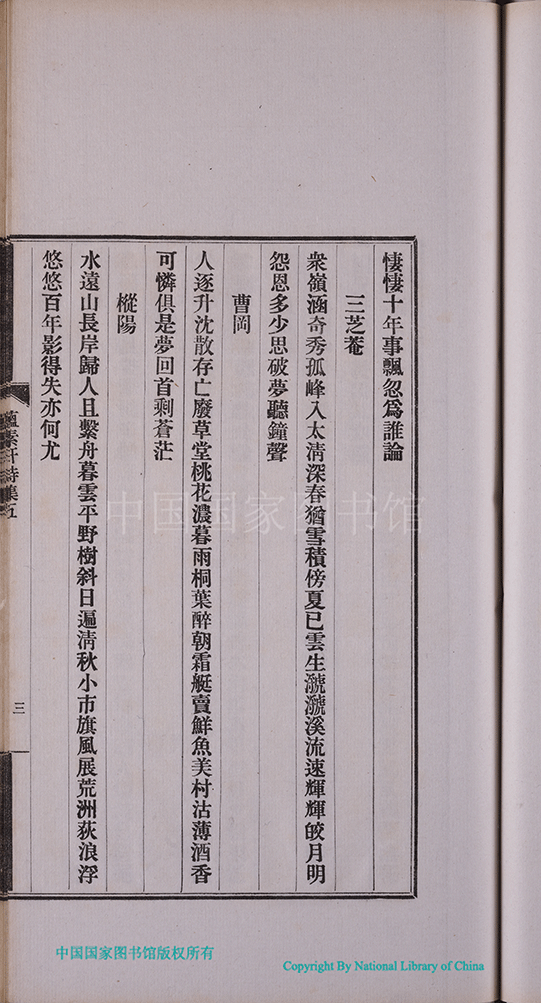 悽悽十年事飄忽爲誰論
三芝菴
衆嶺涵奇秀孤峰入太淸深春猶雪積傍夏已雲生虢虢溪流速輝輝皎月明
怨恩多少思破夢聽鐘聲
曹岡
人逐升沈散存亡廢草堂桃花濃暮雨桐葉醉朝霜艇賣鮮魚美村沽薄酒香
可憐俱是夢回首剩蒼茫
樅陽
水遠山長岸歸人且繫舟暮雲平野樹斜日遍淸秋小市旗風展荒洲荻浪浮
悠悠百年影得失亦何尤
蘊素軒詩集五
三
中国国家图书馆
中国国家图书馆版权所有
Copyright By National Library of China